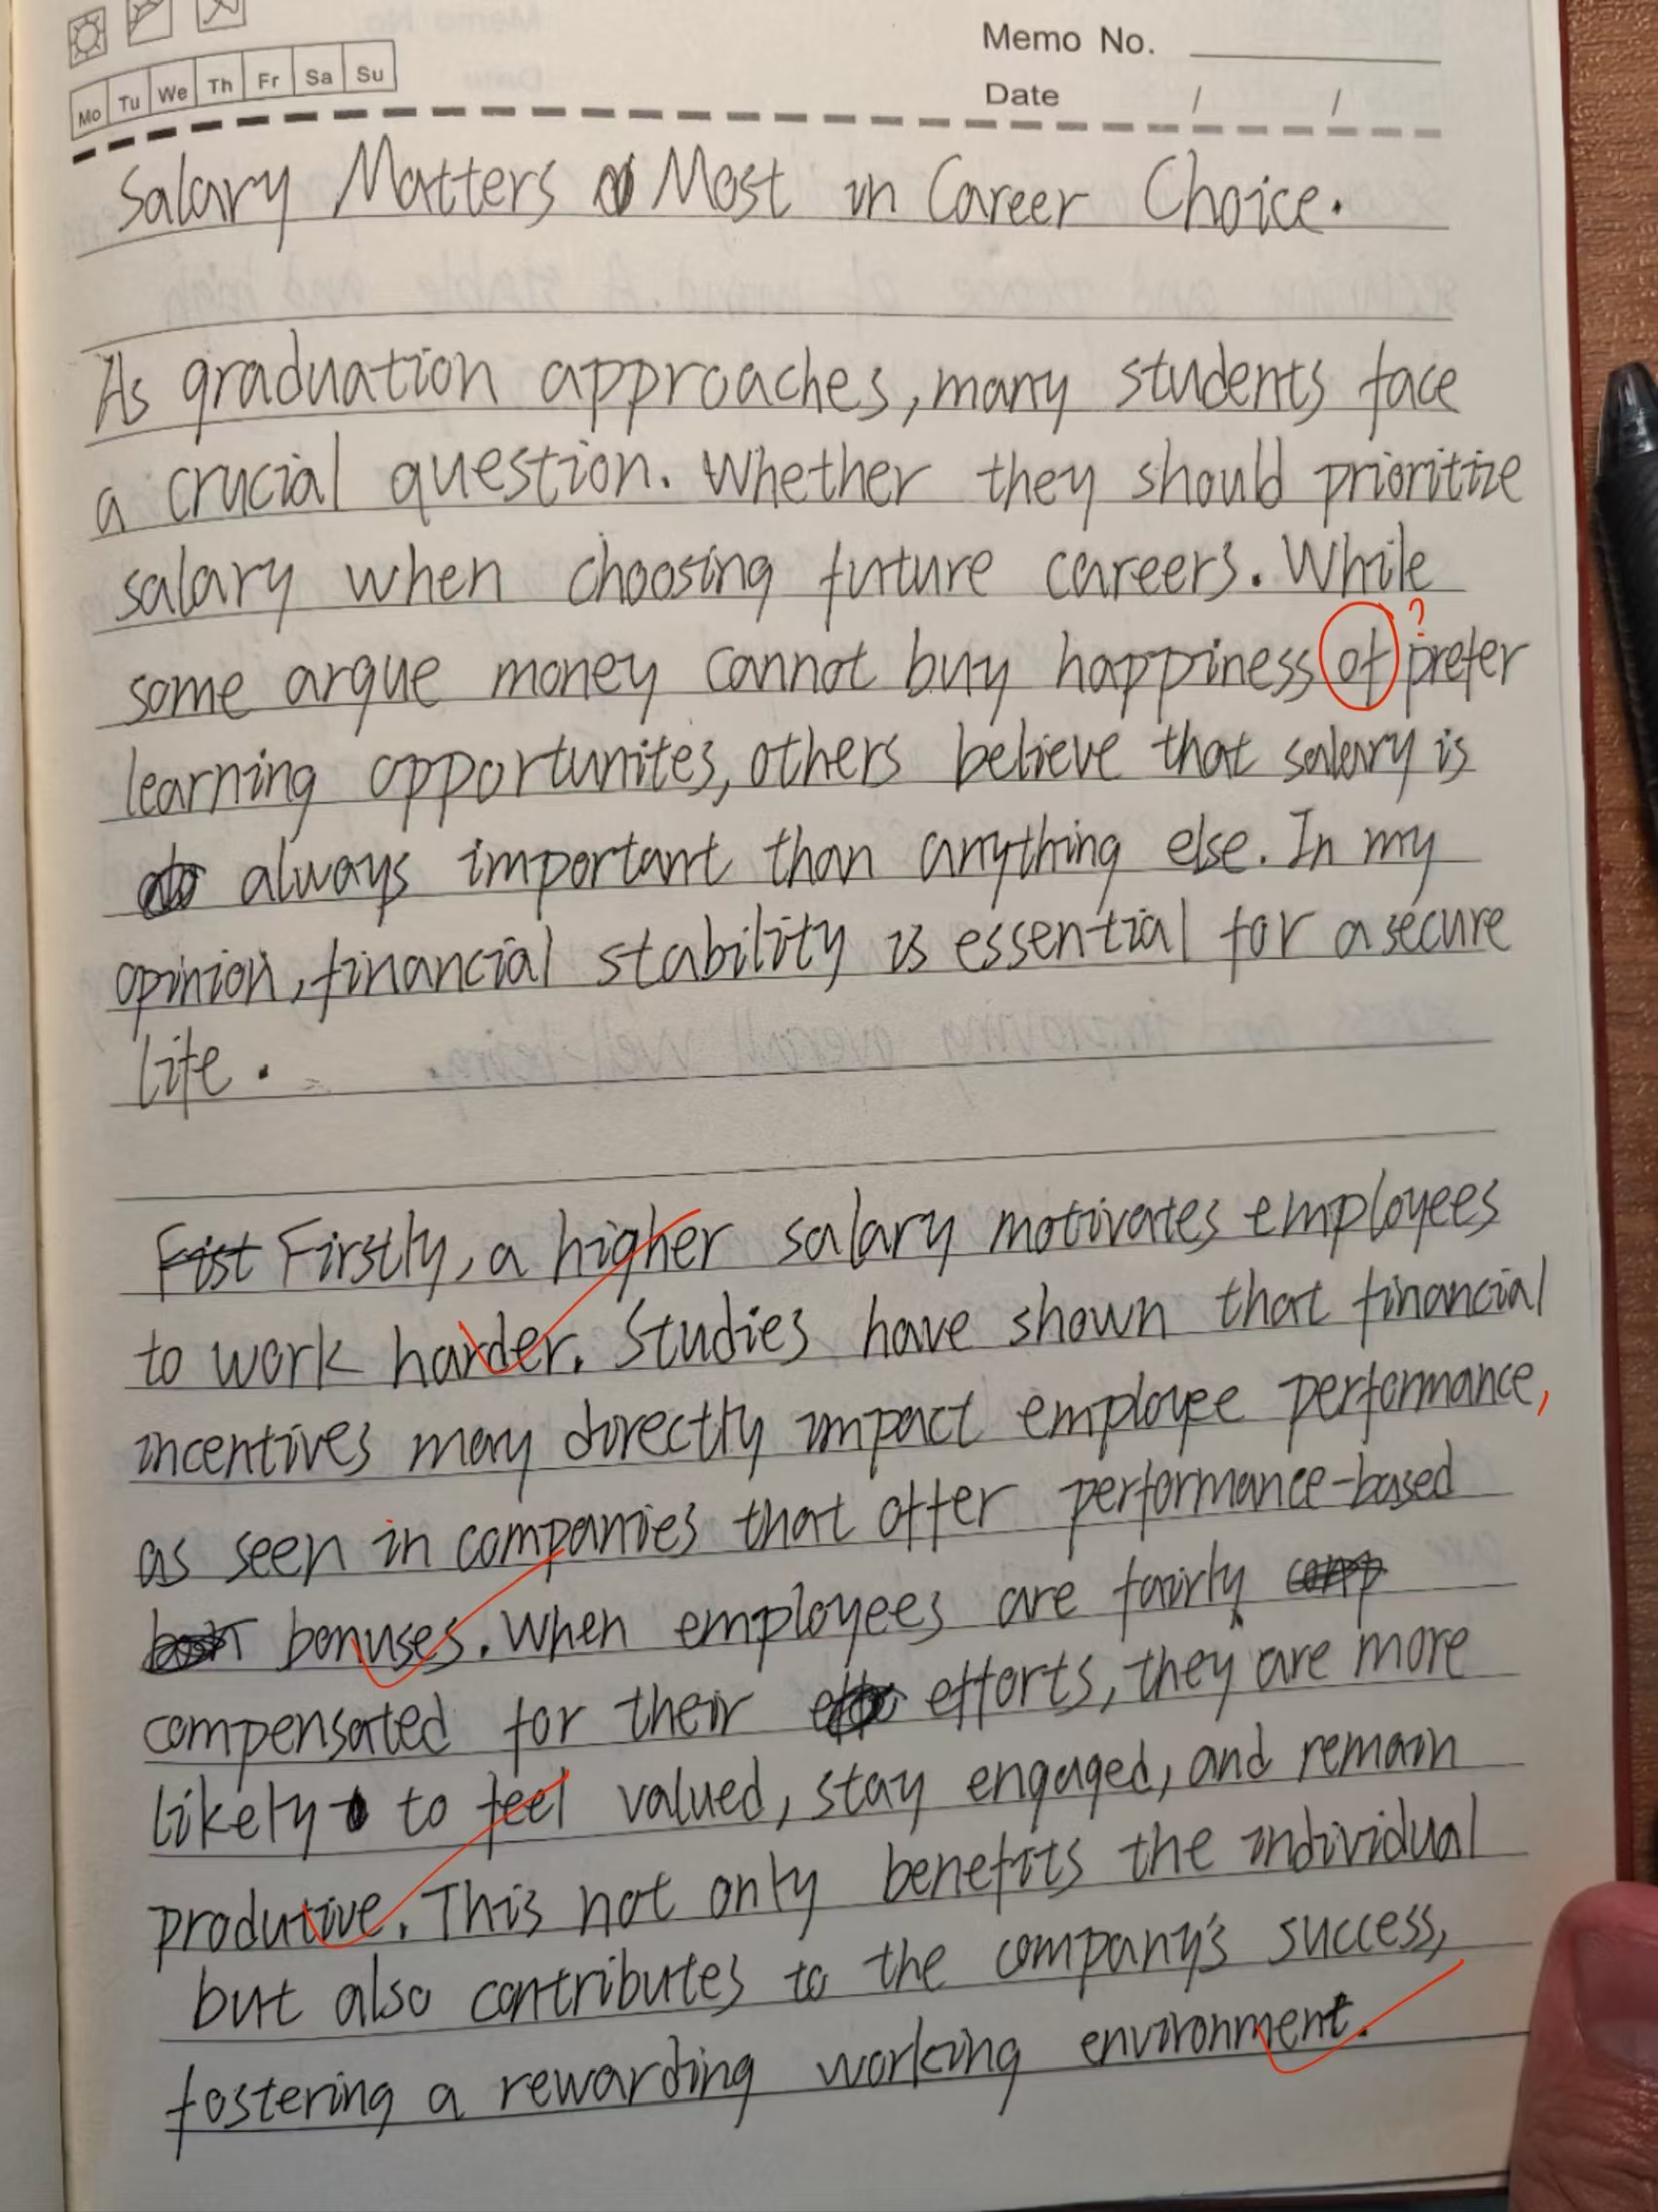 Memo No.
Mo Tu We Th Fr Sa Su
Date / /
Salary Matters Most in Career Choice.
As graduation approaches, many students face
a crucial question. Whether they should prioritize
salary when choosing future careers. While
?
some argue money cannot buy happiness of prefer
learning opportunites, others believe that salary is
always important than anything else. In my
opinion, financial stability is essential for a secure
life.
Fist Firstly, a higher salary motivates employees
to work harder. Studies have shown that financial
incentives may directly impact employee performance,
as seen in companies that offer performance-based
bonuses. When employees are fairly comp
compensated for their efforts, they are more
likely to feel valued, stay engaged, and remain
produtive. This not only benefits the individual
but also contributes to the company's success,
fostering a rewarding working environment.